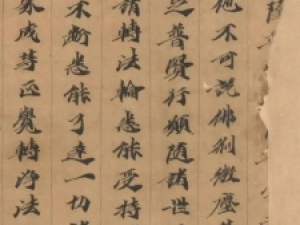 他不可説佛刹微塵
之普賢行願随諸世
請轉法輪悉能受持
不断悉能了達一切
來成等正覺轉淨法